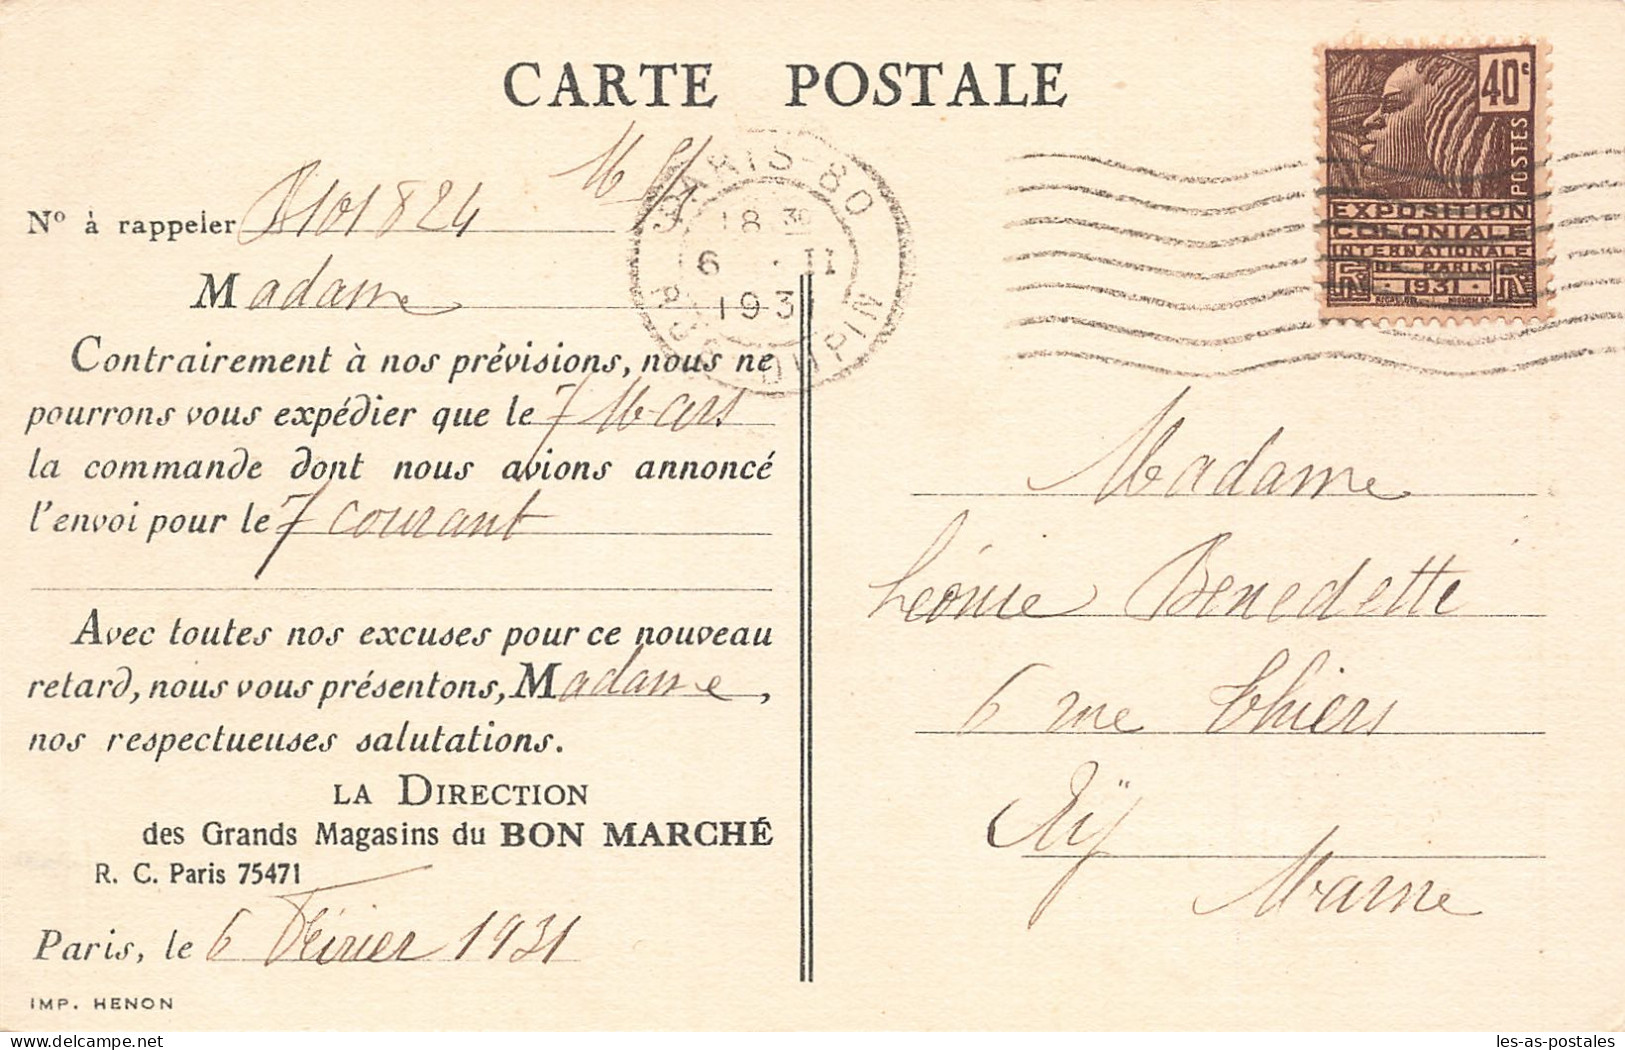 CARTE POSTALE
N° à rappeler 101824
PARIS-80
18 30
6 · II
1931
R. DUPIN
40c
POSTES
EXPOSITION
COLONIALE
INTERNATIONALE
DE PARIS
· 1931 ·
Madame
Contrairement à nos prévisions, nous ne
pourrons vous expédier que le 7 Mars
la commande dont nous avions annoncé
l'envoi pour le 7 courant
Avec toutes nos excuses pour ce nouveau
retard, nous vous présentons, Madame,
nos respectueuses salutations.
LA DIRECTION
des Grands Magasins du BON MARCHÉ
R. C. Paris 75471
Paris, le 6 Février 1931
IMP. HENON
Madame
Léonie Benedetti
6 rue Thiers
Aÿ
Marne
Delcampe.net
les-as-postales